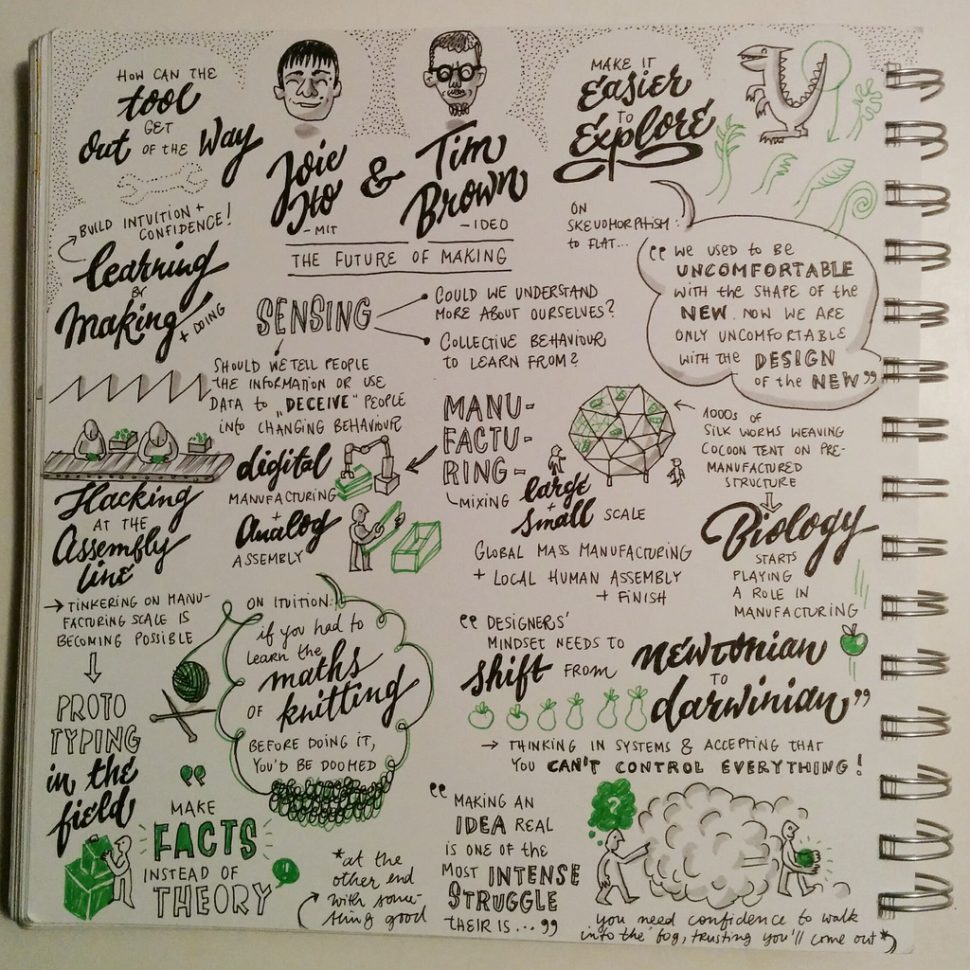 HOW CAN THE
tool
GET
Out OF THE Way
Joie
Ito
- MIT
&
Tim
Brown
- IDEO
THE FUTURE OF MAKING
MAKE IT
Easier
TO
Explore
BUILD INTUITION +
CONFIDENCE!
learning
BY
Making
+ DOING
SENSING
COULD WE UNDERSTAND
MORE ABOUT OURSELVES?
COLLECTIVE BEHAVIOUR
TO LEARN FROM?
SHOULD WE TELL PEOPLE
THE INFORMATION OR USE
DATA to "DECEIVE" PEOPLE
into CHANGING BEHAVIOUR
ON
SKEUDMORPHISM:
to FLAT...
"WE USED TO BE
UNCOMFORTABLE
WITH the SHAPE OF the
NEW. NOW WE ARE
ONLY UNCOMFORTABLE
WITH the DESIGN
OF the NEW"
Hacking
AT THE
Assembly
line
→ TINKERING ON MANU-
FACTURING SCALE IS
BECOMING POSSIBLE
PROTO
TYPING
in the
field
digital
MANUFACTURING
+
Analog
ASSEMBLY
MANU-
FACTU-
RING-
MIXING large
+
small SCALE
GLOBAL MASS MANUFACTURING
+ LOCAL HUMAN ASSEMBLY
+ FINISH
1000s OF
SILK WORMS WEAVING
COCOON TENT ON PRE-
MANUFACTURED
STRUCTURE
Biology
STARTS
PLAYING
A ROLE IN
MANUFACTURING
ON ITUITION:
if you HAD to
LEARN the
maths
OF knitting
BEFORE DOING IT,
YOU'D BE DOOMED
"DESIGNERS'
MINDSET NEEDS TO
shift FROM newtonian
TO
darwinian"
→ THINKING IN SYSTEMS & ACCEPTING THAT
YOU CAN'T CONTROL EVERYTHING!
"MAKE
FACTS
INSTEAD OF
THEORY
!
"MAKING AN
IDEA REAL
IS ONE OF THE
MOST INTENSE
STRUGGLE
THEIR IS..."
?
you need confidence to walk
into the fog, trusting you'll come out*
*at the
other end
with some-
thing good